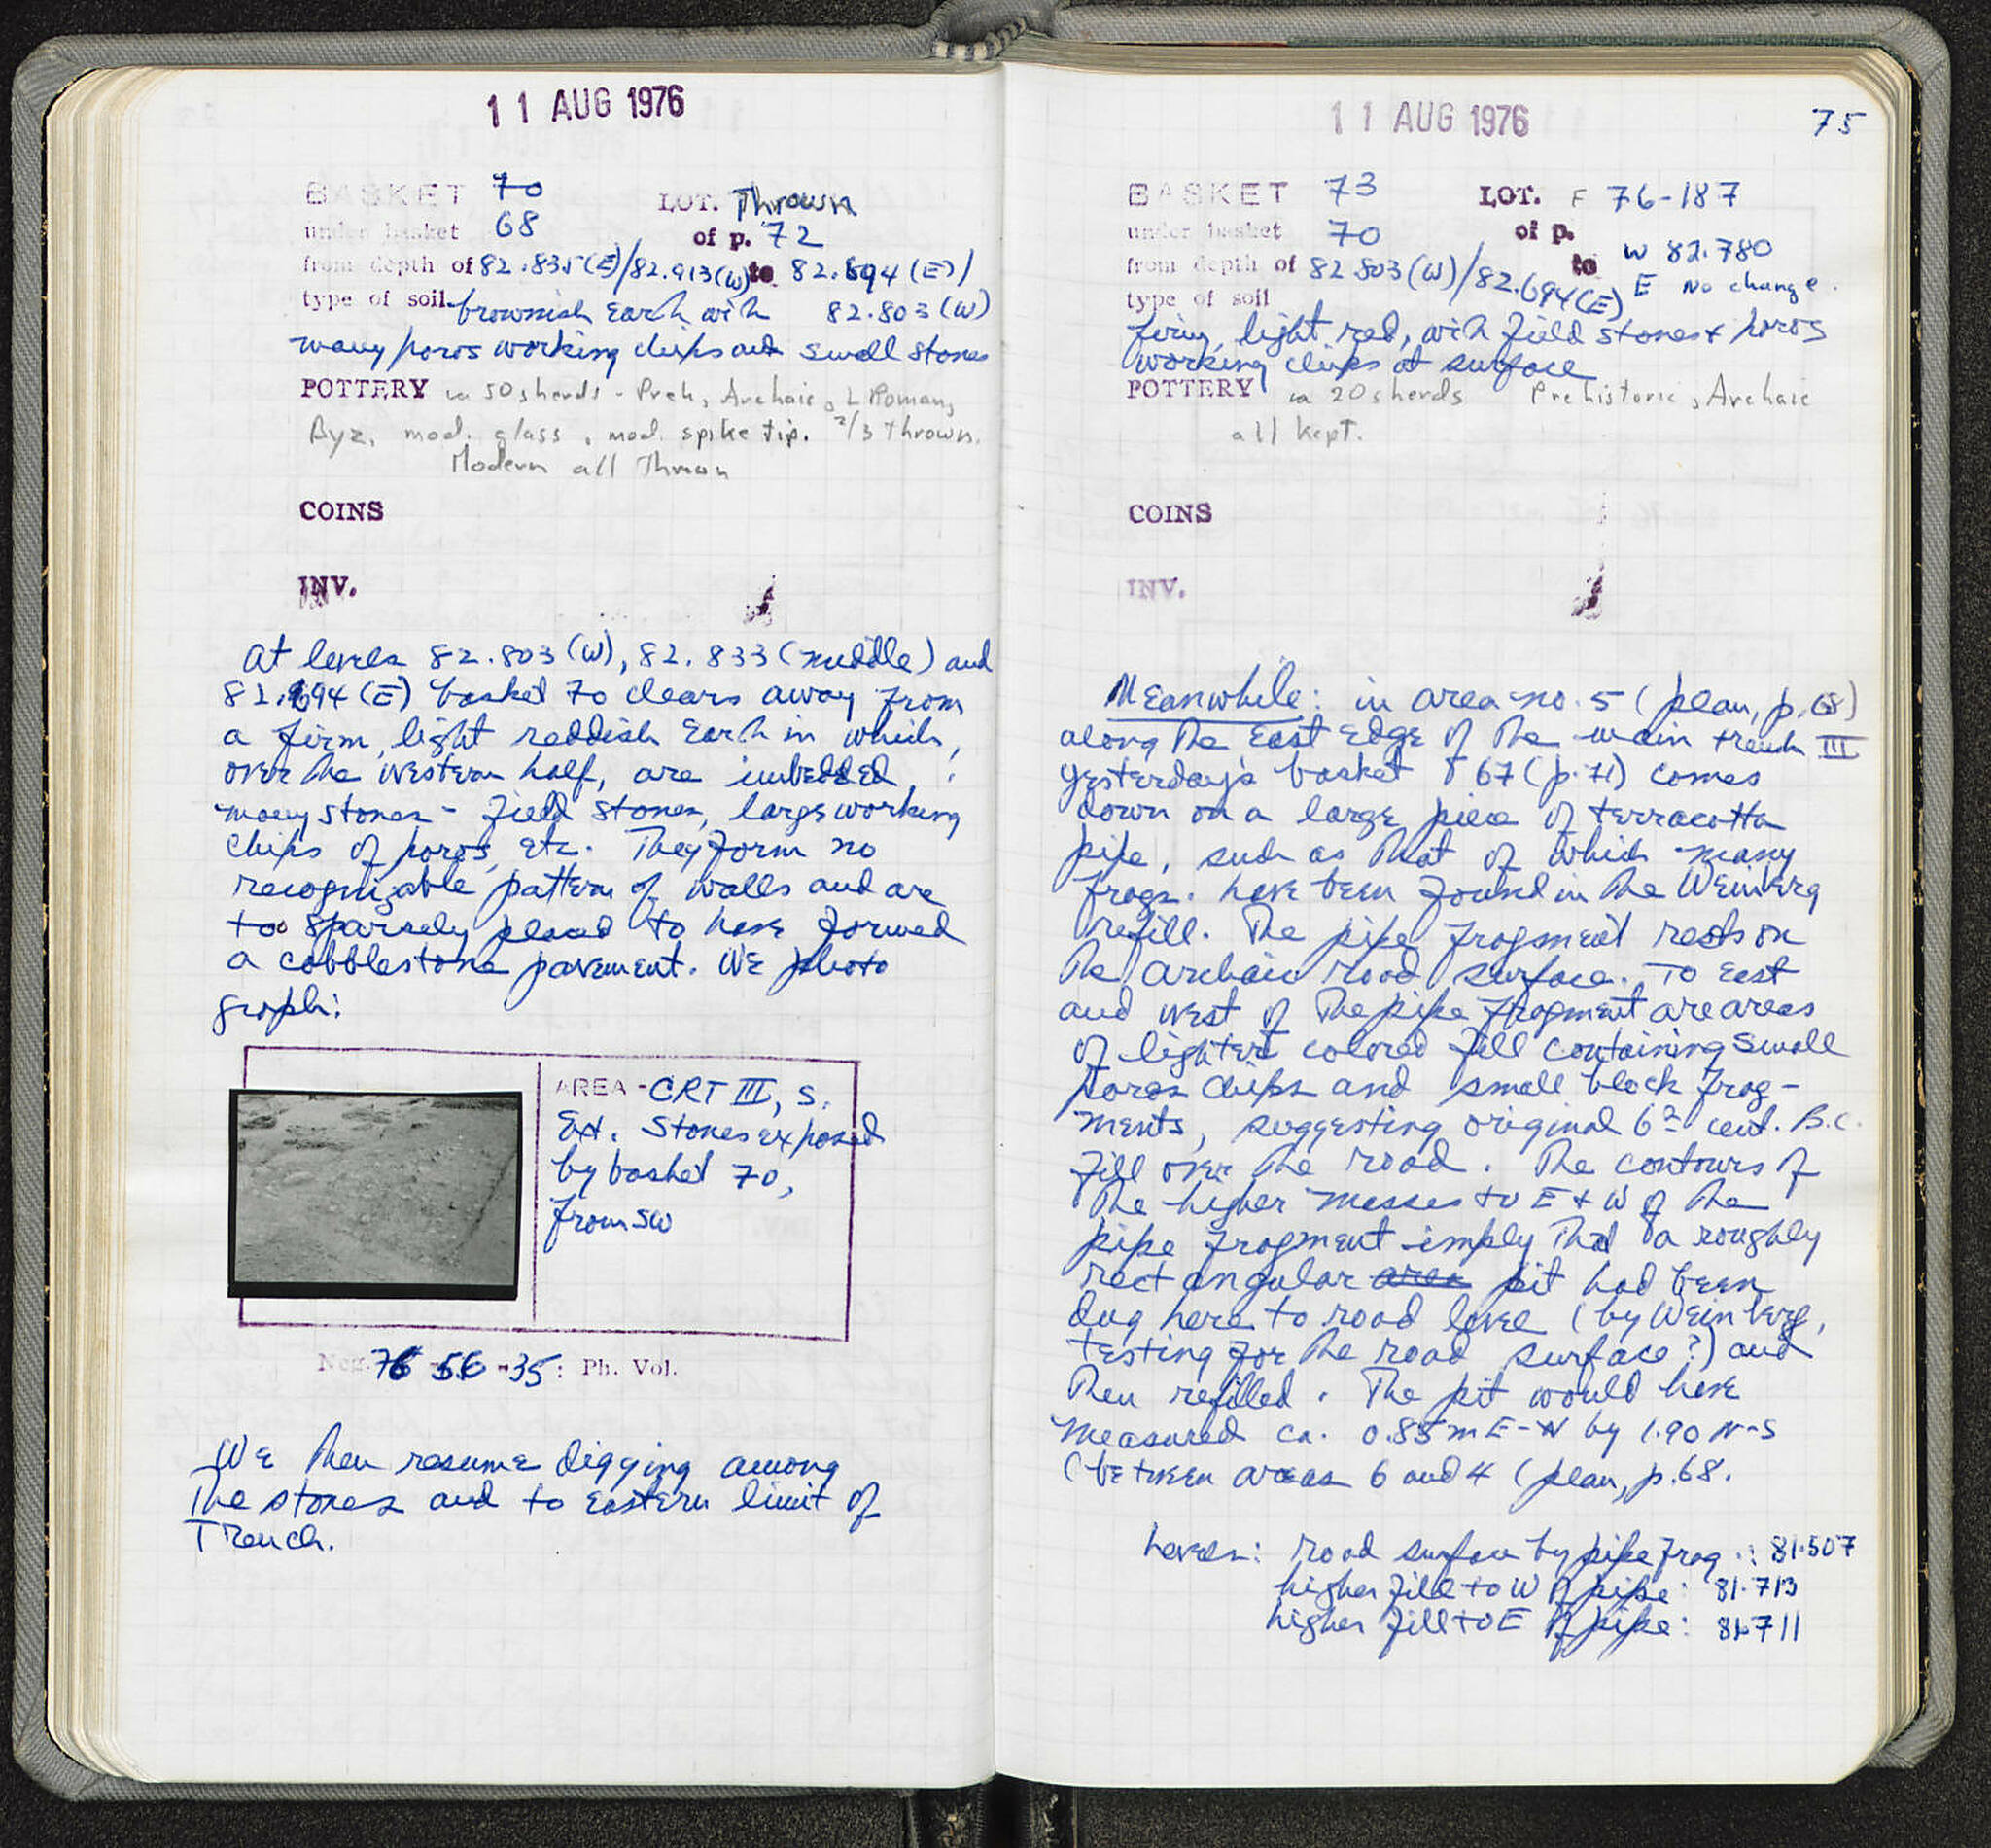 11 AUG 1976
BASKET 70 LOT. Thrown
under basket 68 of p. 72
from depth of 82.835(E)/82.913(W) to 82.694(E)/
type of soil brownish earth with 82.803(W)
many poros working chips and small stones
POTTERY ca 50 sherds - Preh, Archaic, L Roman,
Byz, mod. glass, mod. spike tip. 2/3 thrown.
Modern all Thrown
COINS
INV.
At levels 82.803(W), 82.833(middle) and
82.694(E) basket 70 clears away from
a firm, light reddish earth in which,
over the western half, are imbedded
many stones - field stones, large working
chips of poros, etc. They form no
recognizable pattern of walls and are
too sparsely placed to have formed
a cobblestone pavement. We photo
graph:
AREA - CRT III, S.
Ext. Stones exposed
by basket 70,
from SW
Neg. 76-56-35: Ph. Vol.
We then resume digging among
the stones and to eastern limit of
Trench.
11 AUG 1976 75
BASKET 73 LOT. F 76-187
under basket 70 of p.
from depth of 82.803(W)/82.694(E) to W 82.780
type of soil E No change.
firm, light red, with field stones + poros
working chips at surface
POTTERY ca 20 sherds Prehistoric, Archaic
all kept.
COINS
INV.
Meanwhile: in area no. 5 (plan, p. 68)
along the East Edge of the main trench III
yesterday's basket 67 (p. 71) comes
down on a large piece of terracotta
pipe, such as that of which many
frags. have been found in the Weinberg
refill. The pipe fragment rests on
the archaic road surface. To East
and west of the pipe fragment are areas
of lighter colored fill containing small
poros chips and small block frag-
ments, suggesting original 6th cent. B.C.
fill over the road. The contours of
the higher masses to E + W of the
pipe fragment imply that a roughly
rectangular area pit had been
dug here to road level (by Weinberg,
testing for the road surface?) and
then refilled. The pit would have
measured ca. 0.85m E-W by 1.90 N-S
(between areas 6 and 4 (plan, p. 68.
Levels: road surface by pipe frag.: 81.507
higher fill to W of pipe: 81.713
higher fill to E of pipe: 81.711